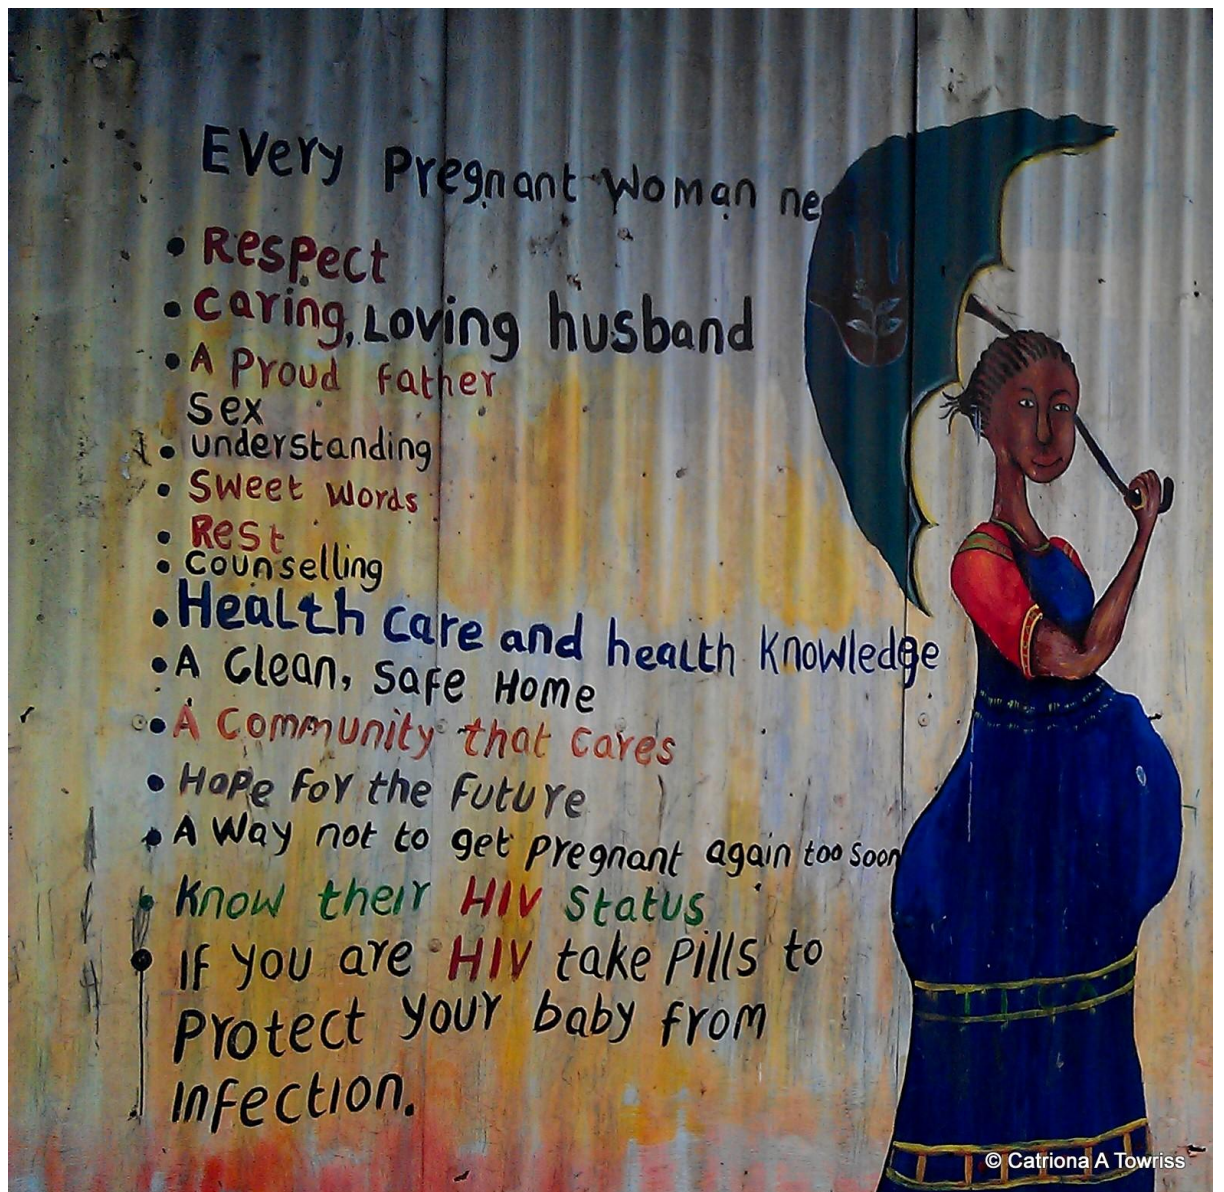 Every Pregnant Woman ne
• Respect
• Caring, Loving husband
• A Proud father
Sex
• understanding
• Sweet words
• Rest
• Counselling
• Health care and health knowledge
• A Clean, Safe Home
• A Community that cares
• Hope For the Future
• A Way not to get Pregnant again too soon
• Know their HIV Status
• If you are HIV take Pills to
Protect your baby from
infection.
© Catriona A Towriss